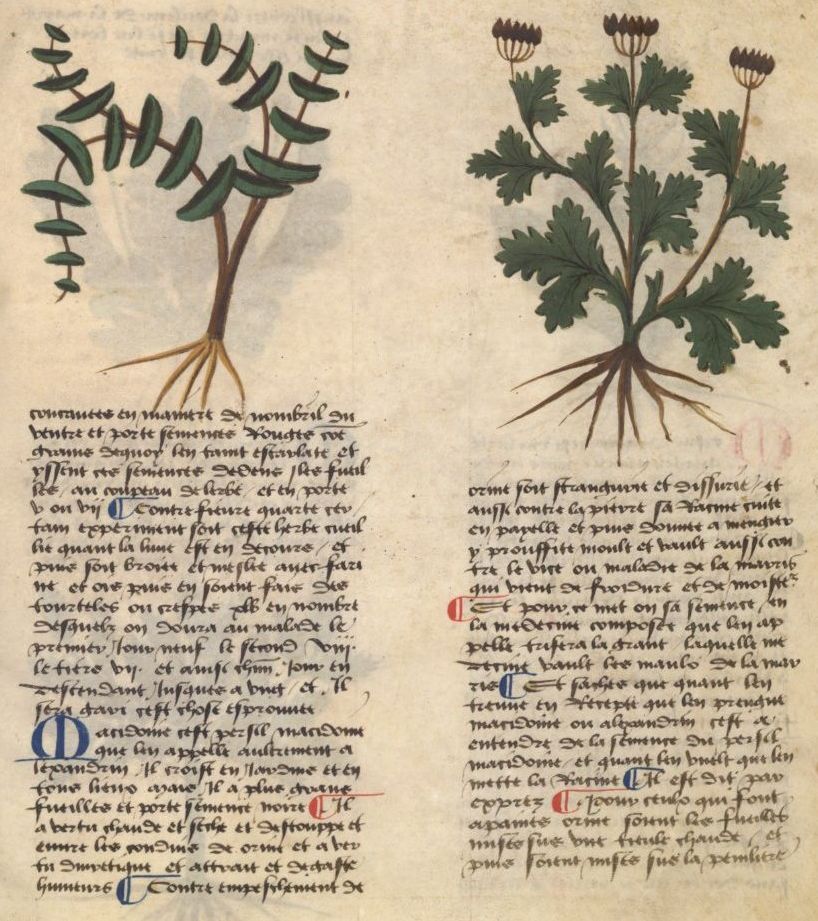 concavees en maniere de nombril du
ventre et porte semences Rouges coe
grains dequoy len taint escarlate et
yssent ces semences dedens les fueil
les, au coupeau de lerbe, et en porte
v ou vij Contre fieure quarte cer
tain experiment soit ceste herbe cueil
lie quant la lune est en decours, et
puis soit broiee et meslee avec fari
ne et ois puis en soient fais des
tourteles ou crespes xlv en nombre
desquelz on doura au malade le
premier Jour neuf le second viij.
le tiers vij. et ainsi chm Jour en
descendant Jusques a ung, et Il
sera gari cest chose esprouvee
Macidoine cest persil macidoine
que len appelle aultrement a
lexandrin, Il croist en Jardins et en
tous lieux Il a plus grans
fueilles et porte semence noire Il
a vertu chaude et seche et destouppe et
euure les condius de orine et a ver
tu diuretique et attrait et degaste
humeurs Contre empeschement de
orine soit stranguirie et dissurie, et
aussi contre la pierre sa Racine cuite
en payelle et puis donnee a mengier
y prouffite moult et vault aussi con
tre le vice ou maladie de la marris
qui vient de froidure et de moiste
Et pour ce met on sa semence, en
la medecine composee que len ap
pelle trifera la grant laquelle me
decine vault les maulx de la mar
ris Et saches que quant len
treuue en Recepte que len prengne
macidoine ou alexandrin cest a
entendre de la semence du persil
macidoine, et quant len vuelt que len
mette la Racine Il est dit par
exprez A pour ceulx qui font
a paines orine soient les fueilles
mises sus une tieule chaude, et
puis soient mises sus la penilliere